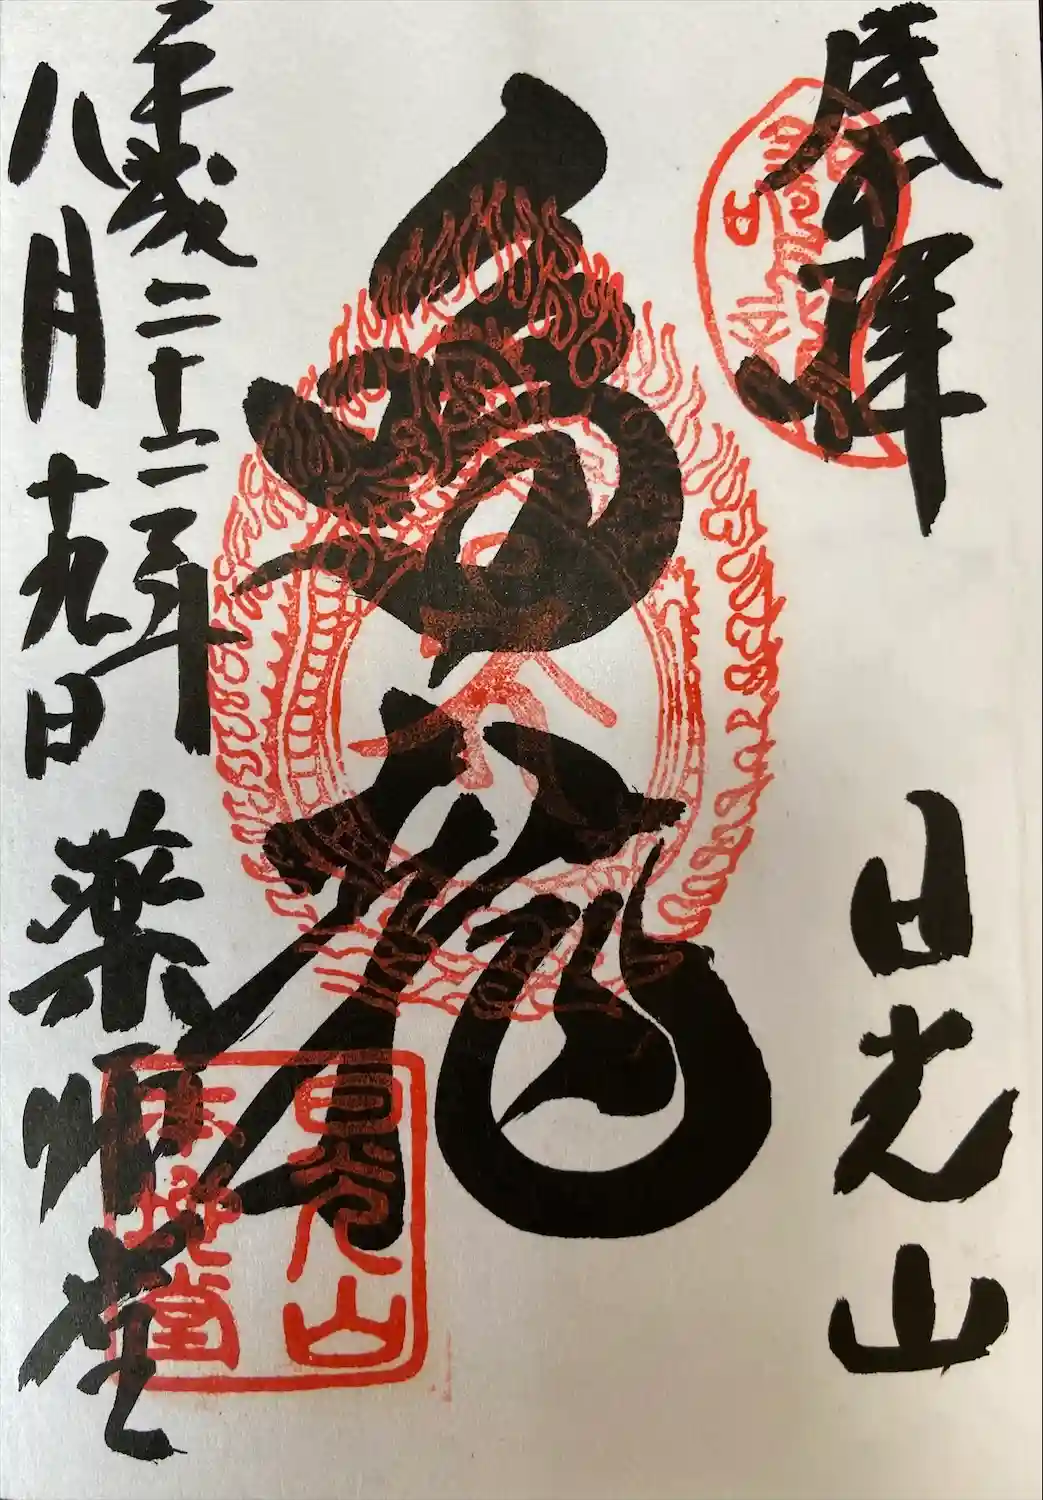 奉拝 日光山
鳴龍
平成二十二年
八月十九日
薬師堂
日光山
本地堂